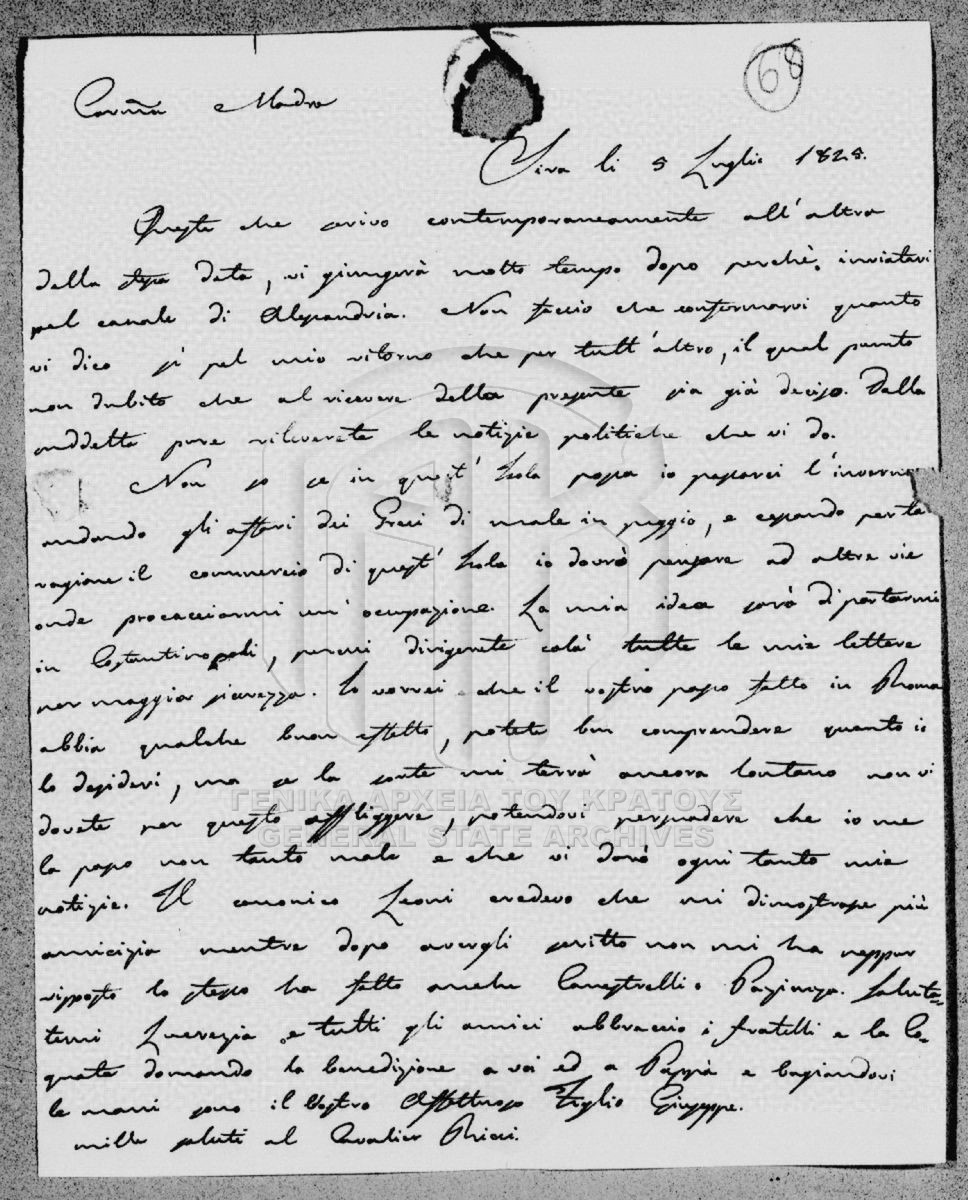 68
Carissima Madre
Sira li 5 Luglio 1828.
Questa che scrivo contemporaneamente all'altra
della stessa data, vi giungerà molto tempo dopo perchè inviatavi
pel canale di Alessandria. Non faccio che confermarvi quanto
vi dico sì pel mio ritorno che per tutt'altro, il qual punto
non dubito che al ricevere della presente sia già deciso. Dalla
suddetta pure rileverete le notizie politiche che vi do.
Non so se in quest' Isola possa io passarci l'inverno
andando gli affari dei Greci di male in peggio, e cessando per tal
ragione il commercio di quest' Isola io dovrò pensare ad altre vie
onde procacciarmi un' ocupazione. La mia idea sarà di portarmi
in Costantinopoli, perciò dirigerete colà tutte le mie lettere
per maggior sicurezza. Io vorrei che il vostro passo fatto in Rhoma
abbia qualche buon effetto, potete ben comprendere quanto io
lo desideri, ma se la sorte mi terrà ancora lontano non vi
dovete per questo affliggere, potendovi persuadere che io me
la passo non tanto male e che vi darò ogni tanto mie
notizie. Il canonico Leoni credevo che mi dimostrasse più
amicizia mentre dopo avergli scritto non mi ha neppur
risposto lo stesso ha fatto anche Canestrelli. Pazienza. Saluta-
temi Lucrezia e tutti gli amici abbraccio i fratelli e la Co-
gnata domando la benedizione a voi ed a Pappà e baciandovi
le mani sono il Vostro Affettuoso Figlio Giuseppe.
mille saluti al Cavalier Ricci.
ΓΕΝΙΚΑ ΑΡΧΕΙΑ ΤΟΥ ΚΡΑΤΟΥΣ
GENERAL STATE ARCHIVES